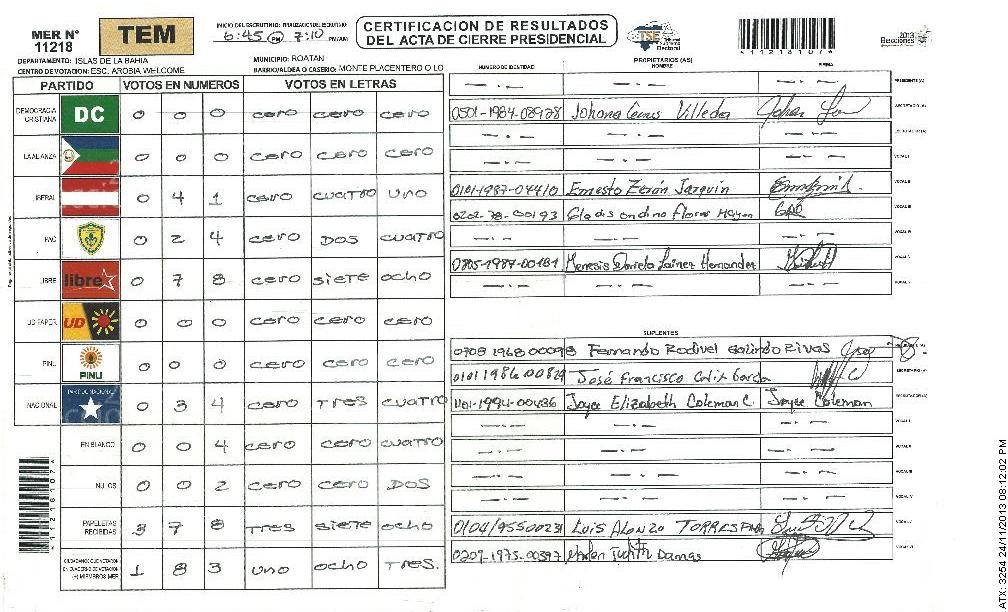 MER N° 11218
TEM
INICIO DEL ESCRUTINIO: FINALIZACION DEL ESCRUTINIO
6:45 PM 7:10 PM/AM
CERTIFICACION DE RESULTADOS
DEL ACTA DE CIERRE PRESIDENCIAL
TSE Tribunal Supremo Electoral
*11218107*
2013 Elecciones
DEPARTAMENTO: ISLAS DE LA BAHIA
MUNICIPIO: ROATAN
CENTRO DE VOTACION: ESC. AROBIA WELCOME
BARRIO/ALDEA O CASERIO: MONTE PLACENTERO O LO
PARTIDO VOTOS EN NUMEROS VOTOS EN LETRAS
DEMOCRACIA CRISTIANA DC 0 0 0 cero cero cero
LA ALIANZA 0 0 0 cero cero cero
LIBERAL 0 4 1 cero cuatro uno
PAC 0 2 4 cero DOS cuatro
LIBRE libre 0 7 8 cero siete ocho
UD FAPER UD 0 0 0 cero cero cero
PINU PINU 0 0 0 cero cero cero
NACIONAL PARTIDO NACIONAL 0 3 4 cero Tres cuatro
EN BLANCO 0 0 4 cero cero cuatro
NULOS 0 0 2 cero cero DOS
PAPELETAS RECIBIDAS 3 7 8 Tres siete ocho
CIUDADANOS QUE VOTARON EN CUADERNO DE VOTACION (+) MIEMBROS MER 1 8 3 uno ocho Tres.
*11218107*
NUMERO DE IDENTIDAD PROPIETARIOS (AS) NOMBRE FIRMA
PRESIDENTE (A)
0501-1984-08928 Johana Villeda SECRETARIO (A)
ESCRUTADOR (A)
VOCAL I
0101-1987-04410 Ernesto Zerón Jarquin VOCAL II
0202-78-00193 Gladis ondina Flores VOCAL III
VOCAL IV
0805-1987-00181 Lainez Hernandez VOCAL V
VOCAL VI
SUPLENTES
0708 1968 00098 Fernando Rodivel Galindo Rivas
0101 1986 00829 José Francisco Calix Garcia SECRETARIO (A)
1101-1994-00436 Joyce Elizabeth Coleman C. Joyce Coleman ESCRUTADOR (A)
VOCAL I
VOCAL II
VOCAL III
VOCAL IV
0104199500231 Luis Alonzo TORRES VOCAL V
0209-1975-00397 Judith Damas VOCAL VI
ATX: 3254 24/11/2013 08:12:02 PM